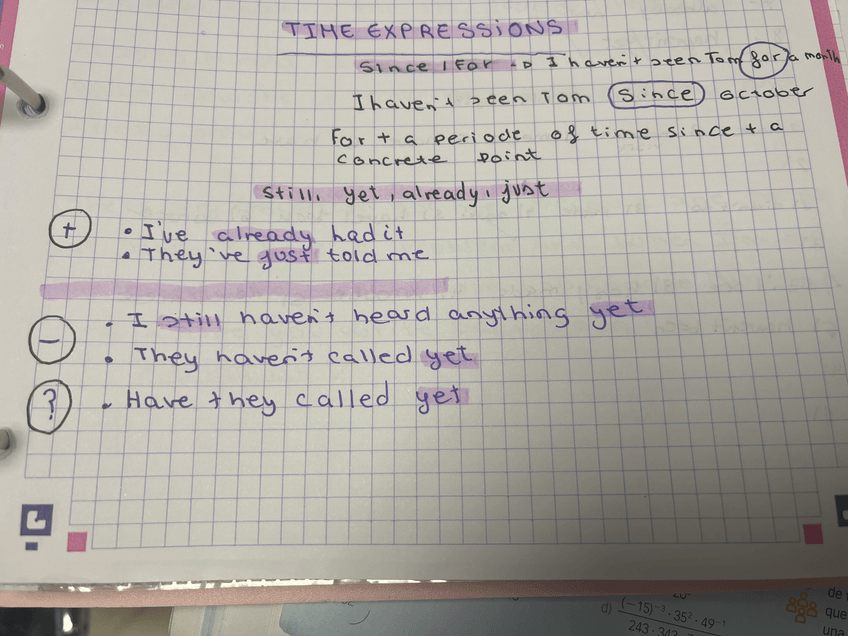 TIME EXPRESSIONS
Since / For → I haven't seen Tom for a month
I haven't seen Tom since october
For + a periode of time since + a
concrete point
Still, yet, already, just
+
• I've already had it
• They've just told me
-
• I still haven't heard anything yet
• They haven't called yet
?
• Have they called yet
d) (-15)⁻³ · 35² · 49⁻¹
de
que
una